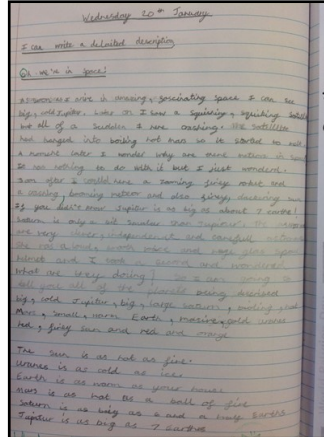 Wednesday 20th January
I can write a detailed description
We're in space!
As soon as I arive in amazing, fascinating space I can see
big, cold Jupiter. Later on I saw a squishing, squiking satellite
but all of a sudden I here crashing. The satellite
had banged into boiling hot mars so it started to
a minute later I wonder why are there meteors in
so nothing to do with it but I just wondered.
Soon after I could here a zooming firey rocket and
a booming meteor and also firey,
If you didn't now Jupiter is as big as about 7 earths!
Saturn is only a bit smaller than Jupiter.
are very clever, independent and carefull
She has already and huge space
helmet and I took a and wondered
what are they doing! I am going to
tell you all of the planets being described
big, cold Jupiter, big, large saturn, boiling, hot
Mars, small, warm Earth, massive, cold uranes
hot, firey sun and red and orange
The sun is as hot as fire.
Uranes is as cold as ice
Earth is as warm as your house
Mars is as hot as a ball of fire
Saturn is as big as 6 and a half Earths
Jupiter is as big as 7 earths